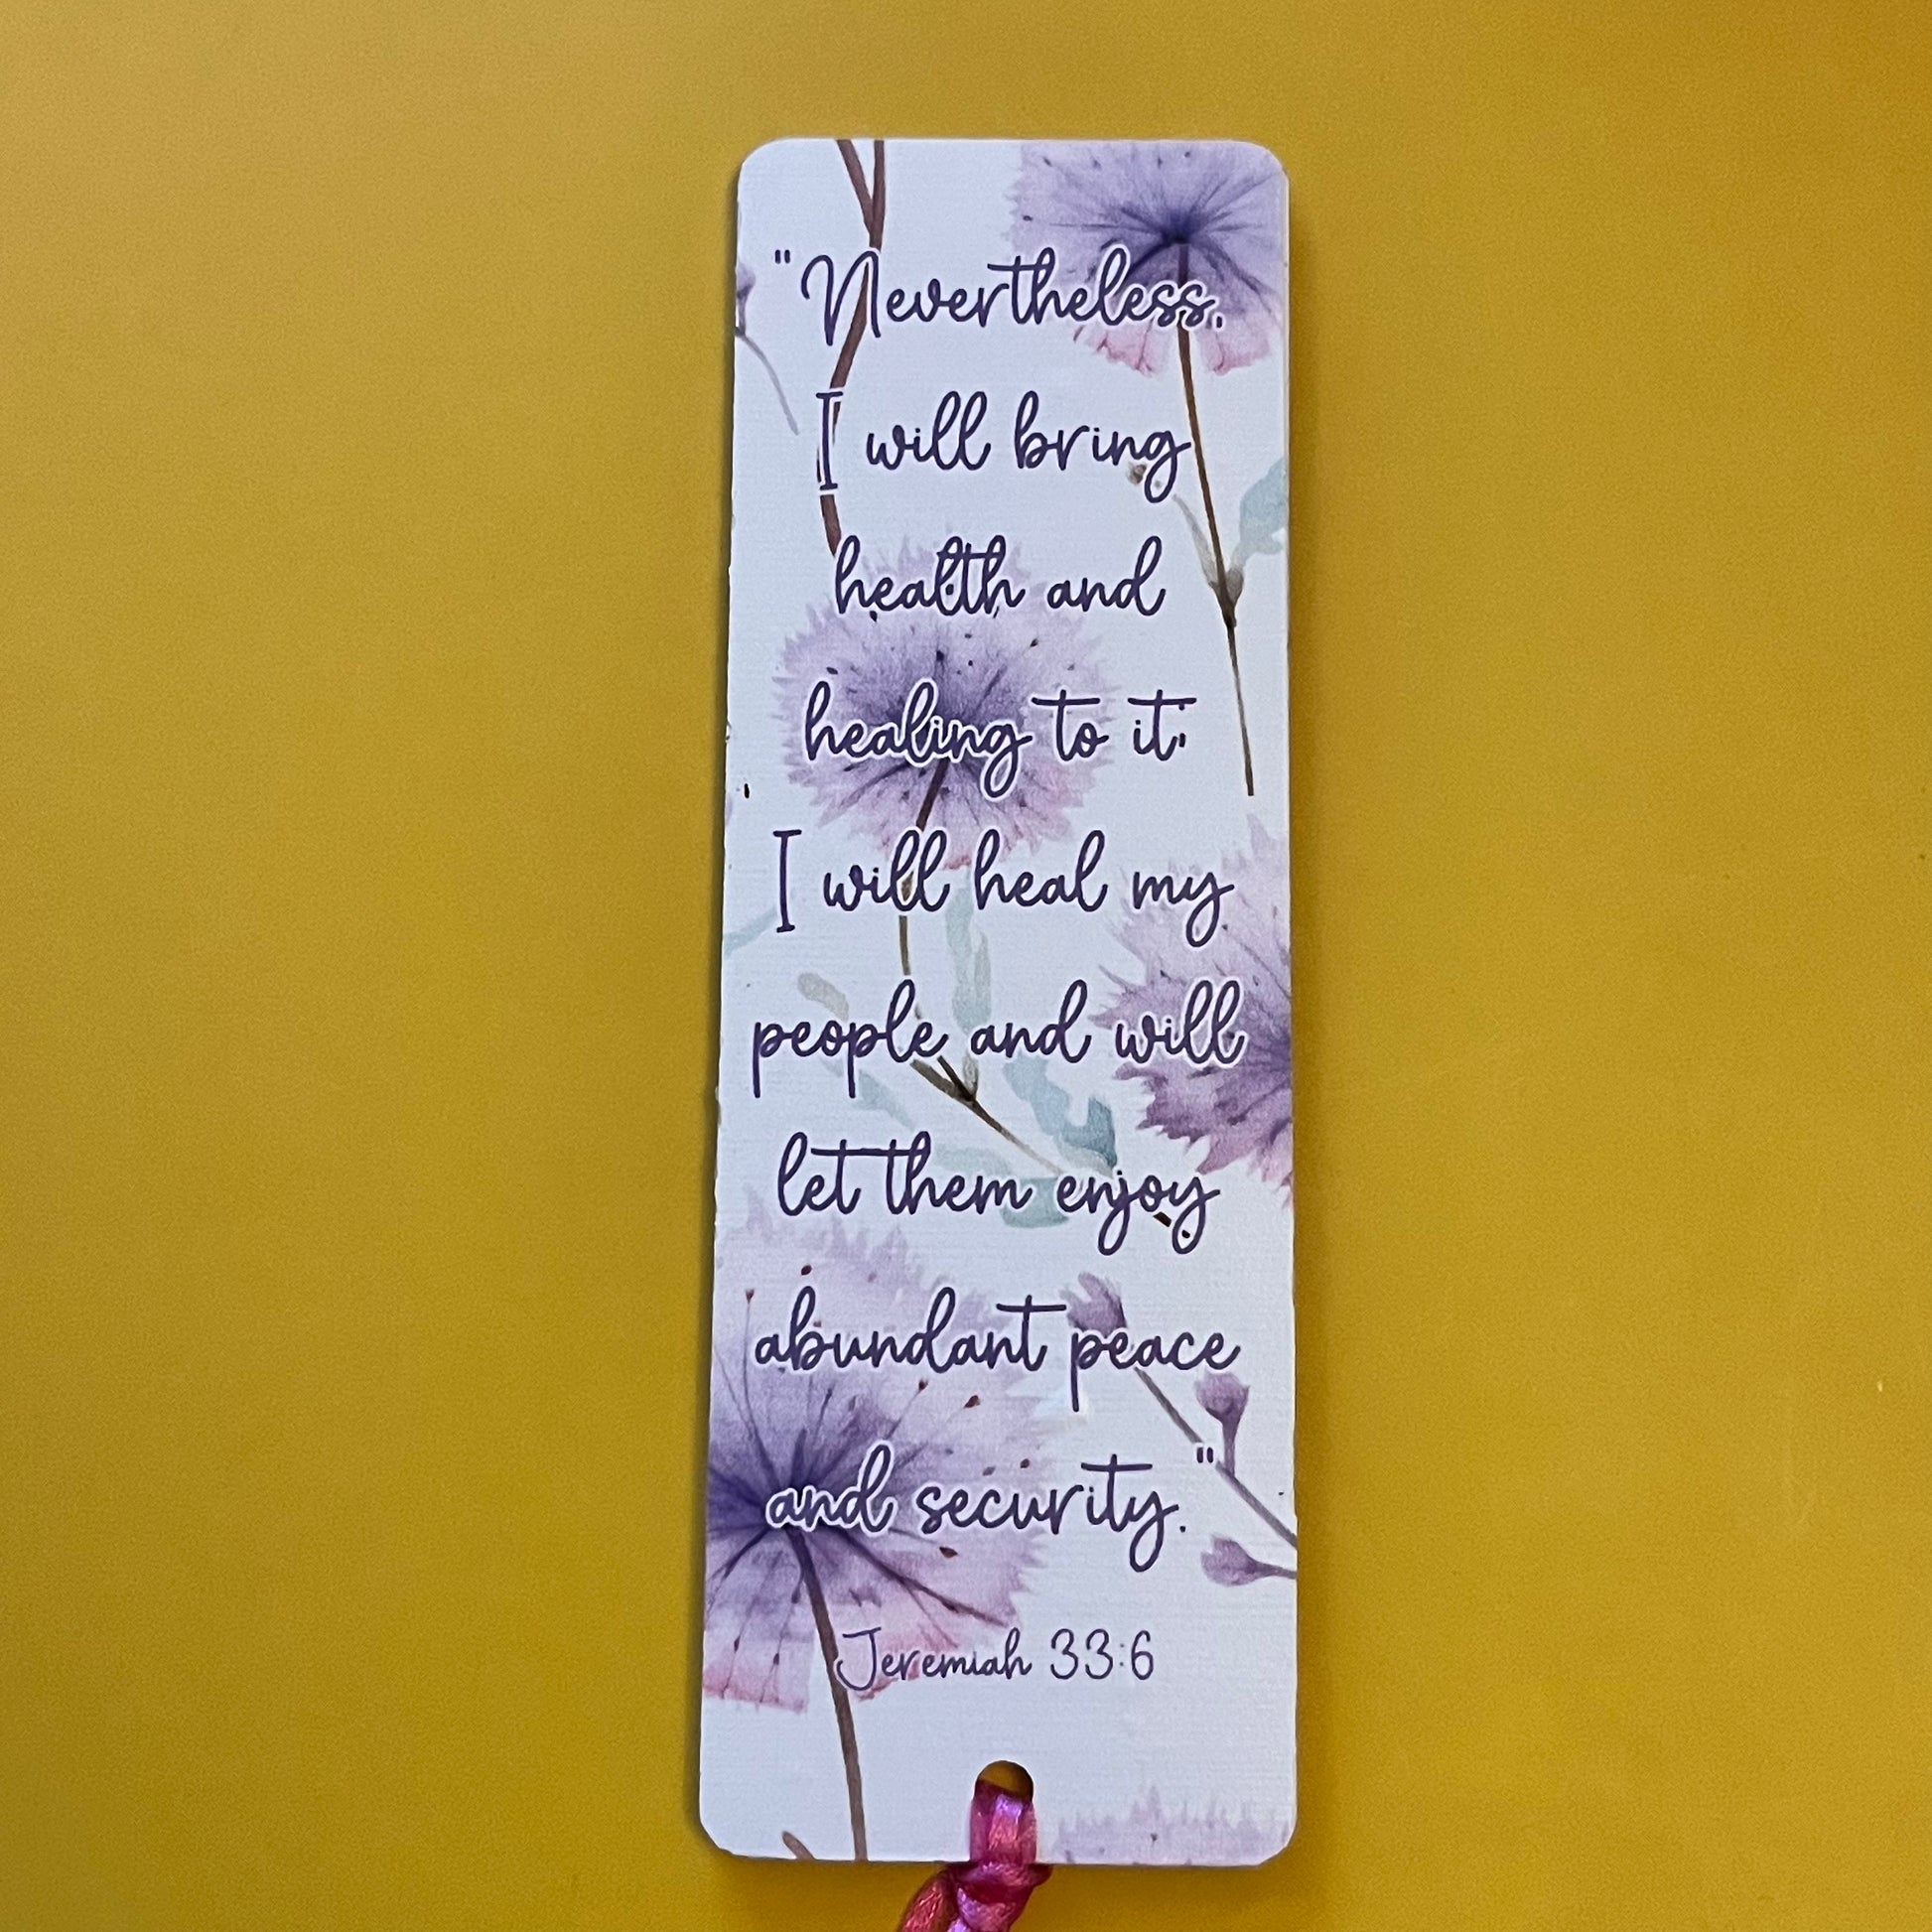 "Nevertheless,
I will bring
health and
healing to it;
I will heal my
people and will
let them enjoy
abundant peace
and security."
Jeremiah 33:6